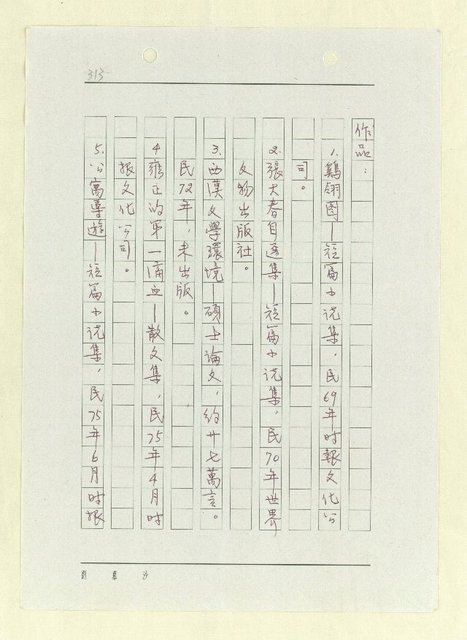 313
作品：
1.鷄翎图—短篇小说集，民69年时報文化公
司。
2.張大春自选集—短篇小说集，民70年世界
文物出版社。
3.西漢文學環境—碩士論文，约廿七萬言。
民72年，未出版。
4雍正的第一滴血—散文集，民75年4月时
报文化公司。
5.公寓導遊—短篇小说集，民75年6月时报
劉慕沙